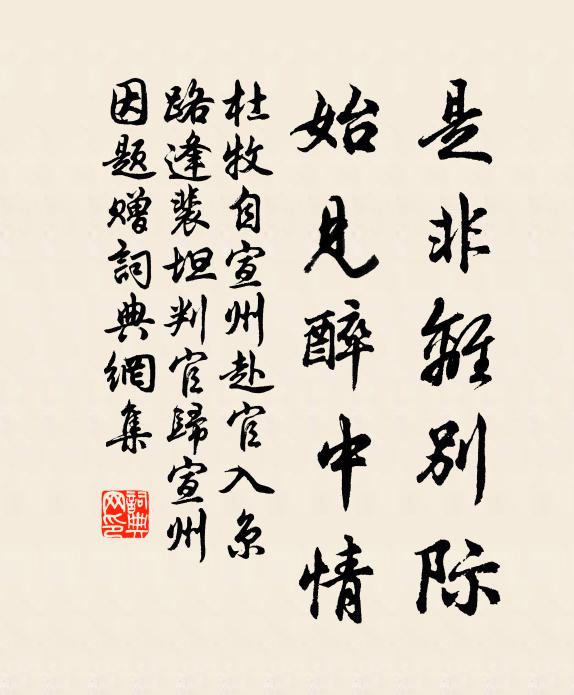 是非離别际
始見醉中情
杜牧自宣州赴官入京
路逢裴坦判官歸宣州
因题贈詞典網集
詞典
网印